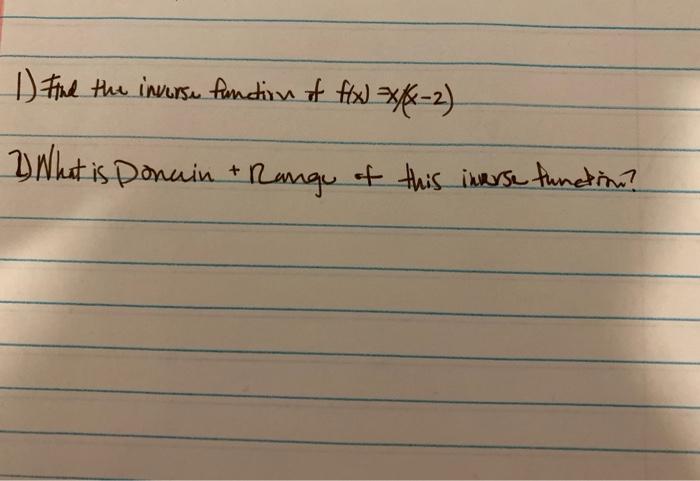 1) Find the inverse function of f(x) = x/(x-2)
2) What is Domain + Range of this inverse function?